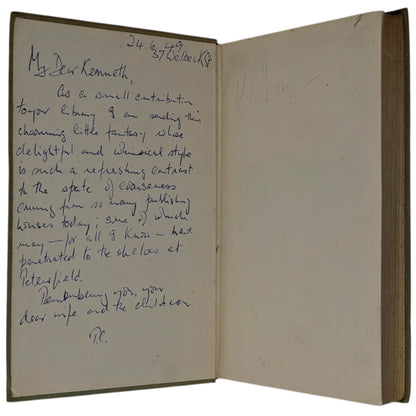 24.6.49
57 Welbeck St
My Dear Kenneth,
As a small contribution
to your library I am sending this
charming little fantasy whose
delightful and whimsical style
is such a refreshing contrast
to the spate of coarseness
coming from so many publishing
houses today; some of which
may — for all I know — have
penetrated to the shelves at
Petersfield.
Remembering you, your
dear wife and the children